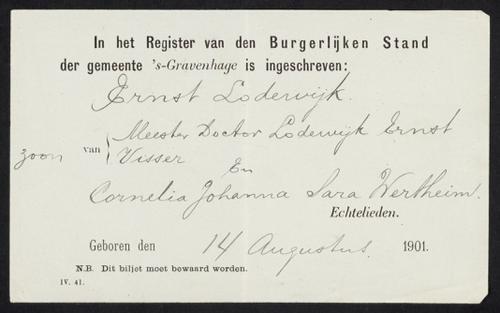 In het Register van den Burgerlijken Stand
der gemeente 's-Gravenhage is ingeschreven:
Ernst Lodewijk.
zoon van Meester Doctor Lodewijk Ernst
Visser
En
Cornelia Johanna Sara Wertheim.
Echtelieden.
Geboren den 14 Augustus. 1901.
N.B. Dit biljet moet bewaard worden.
IV. 41.